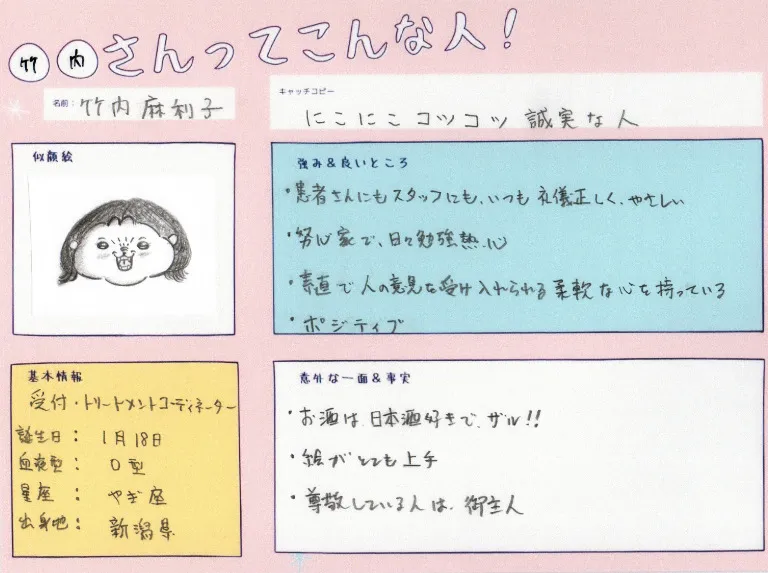 竹内さんってこんな人！
名前： 竹内麻利子
キャッチコピー
にこにこ コツコツ 誠実な人
似顔絵
強み＆良いところ
・患者さんにもスタッフにも、いつも礼儀正しく、やさしい
・努力家で、日々勉強熱心
・素直で人の意見を受け入れられる柔軟な心を持っている
・ポジティブ
基本情報
受付・トリートメントコーディネーター
誕生日： 1月18日
血液型： O型
星座： やぎ座
出身地： 新潟県
意外な一面＆事実
・お酒は、日本酒好きで、ザル!!
・絵がとても上手
・尊敬している人は、御主人